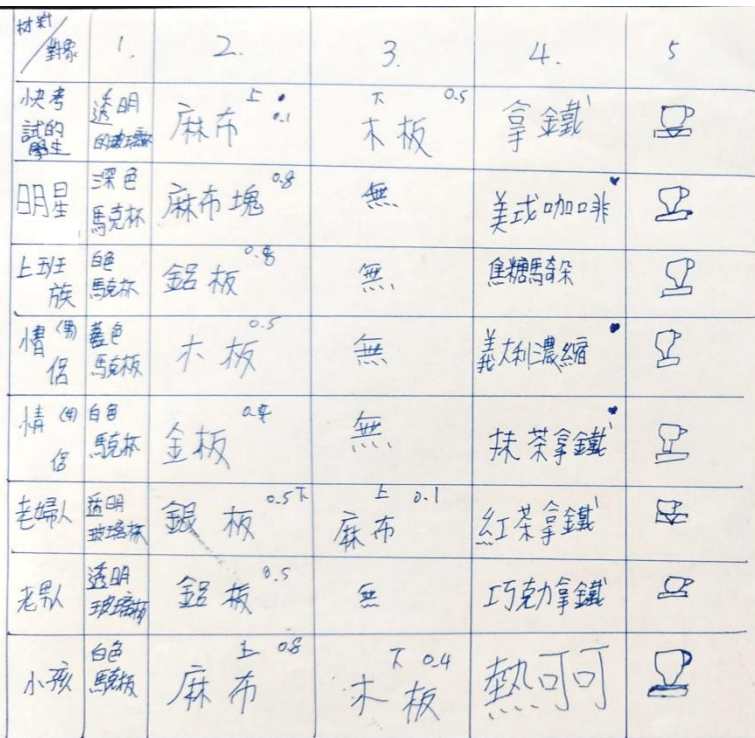 材料
對象 1. 2. 3. 4. 5
快考試的學生 透明的玻璃杯 麻布 上 0.1 木板 下 0.5 拿鐵
明星 深色馬克杯 麻布塊 0.8 無 美式咖啡
上班族 白色馬克杯 鋁板 0.8 無 焦糖馬奇朵
情侶(男) 藍色馬克板 木板 0.5 無 義大利濃縮
情侶 白色馬克杯 金板 無 抹茶拿鐵
老婦人 透明玻璃杯 銀板 0.5下 麻布 上 0.1 紅茶拿鐵
老男人 透明玻璃板 鋁板 0.5 無 巧克力拿鐵
小孩 白色馬克板 麻布 上 0.8 木板 下 0.4 熱可可